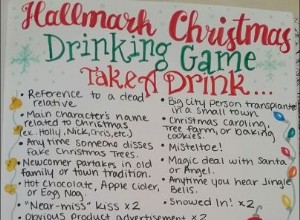 Hallmark Christmas
Drinking Game
Take A Drink...
• Reference to a dead
relative
• Main character's name
related to Christmas
(ex. Holly, Nick, Chris, etc.)
• Anytime someone disses
Fake Christmas Trees.
• Newcomer partakes in old
family or town tradition.
• Hot Chocolate, Apple Cider,
or Egg Nog
• "Near-miss" kiss x2
• Obvious product advertisement x2
• Big City person transplante
in a small town.
• Christmas Caroling,
Tree farm, or baking
cookies.
• Mistletoe!
• Magic deal with Santa
or Angel.
• Anytime you hear Jingle
Bells.
• Snowed In! x2